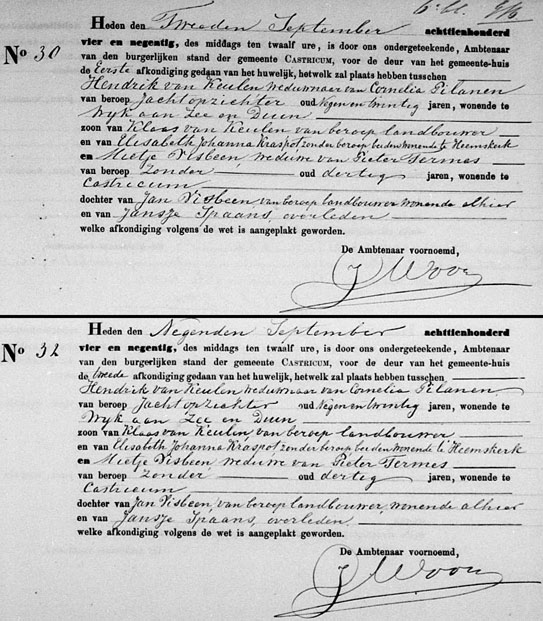 Heden den Tweeden September achttienhonderd
No 30 vier en negentig, des middags ten twaalf ure, is door ons ondergeteekende, Ambtenaar
van den burgerlijken stand der gemeente CASTRICUM, voor de deur van het gemeente-huis
de Eerste afkondiging gedaan van het huwelijk, hetwelk zal plaats hebben tusschen
Hendrik van Keulen weduwnaar van Cornelia Pilanen
van beroep Jachtopziehter oud Negenentwintig jaren, wonende te
Wyk aan Zee en Duin
zoon van Klaas van Keulen van beroep landbouwer
en van Elisabeth Johanna Kraspot zonder beroep beiden wonende te Heemskerk
en Mietje Visbeen weduwe van Pieter Termes
van beroep Zonder oud dertig jaren, wonende te
Castricum
dochter van Jan Visbeen van beroep landbouwer wonende alhier
en van Jansje Spaans, overleden
welke afkondiging volgens de wet is aangeplakt geworden.
De Ambtenaar voornoemd,
Heden den Negenden September achttienhonderd
No 32 vier en negentig, des middags ten twaalf ure, is door ons ondergeteekende, Ambtenaar
van den burgerlijken stand der gemeente CASTRICUM, voor de deur van het gemeente-huis
de tweede afkondiging gedaan van het huwelijk, hetwelk zal plaats hebben tusschen
Hendrik van Keulen weduwnaar van Cornelia Pilanen
van beroep Jachtopziehter oud Negenentwintig jaren, wonende te
Wyk aan Zee en Duin
zoon van Klaas van Keulen van beroep landbouwer
en van Elisabeth Johanna Kraspot zonder beroep beiden wonende te Heemskerk
en Mietje Visbeen weduwe van Pieter Termes
van beroep zonder oud dertig jaren, wonende te
Castricum
dochter van Jan Visbeen, van beroep landbouwer, wonende alhier
en van Jansje Spaans, overleden.
welke afkondiging volgens de wet is aangeplakt geworden.
De Ambtenaar voornoemd,